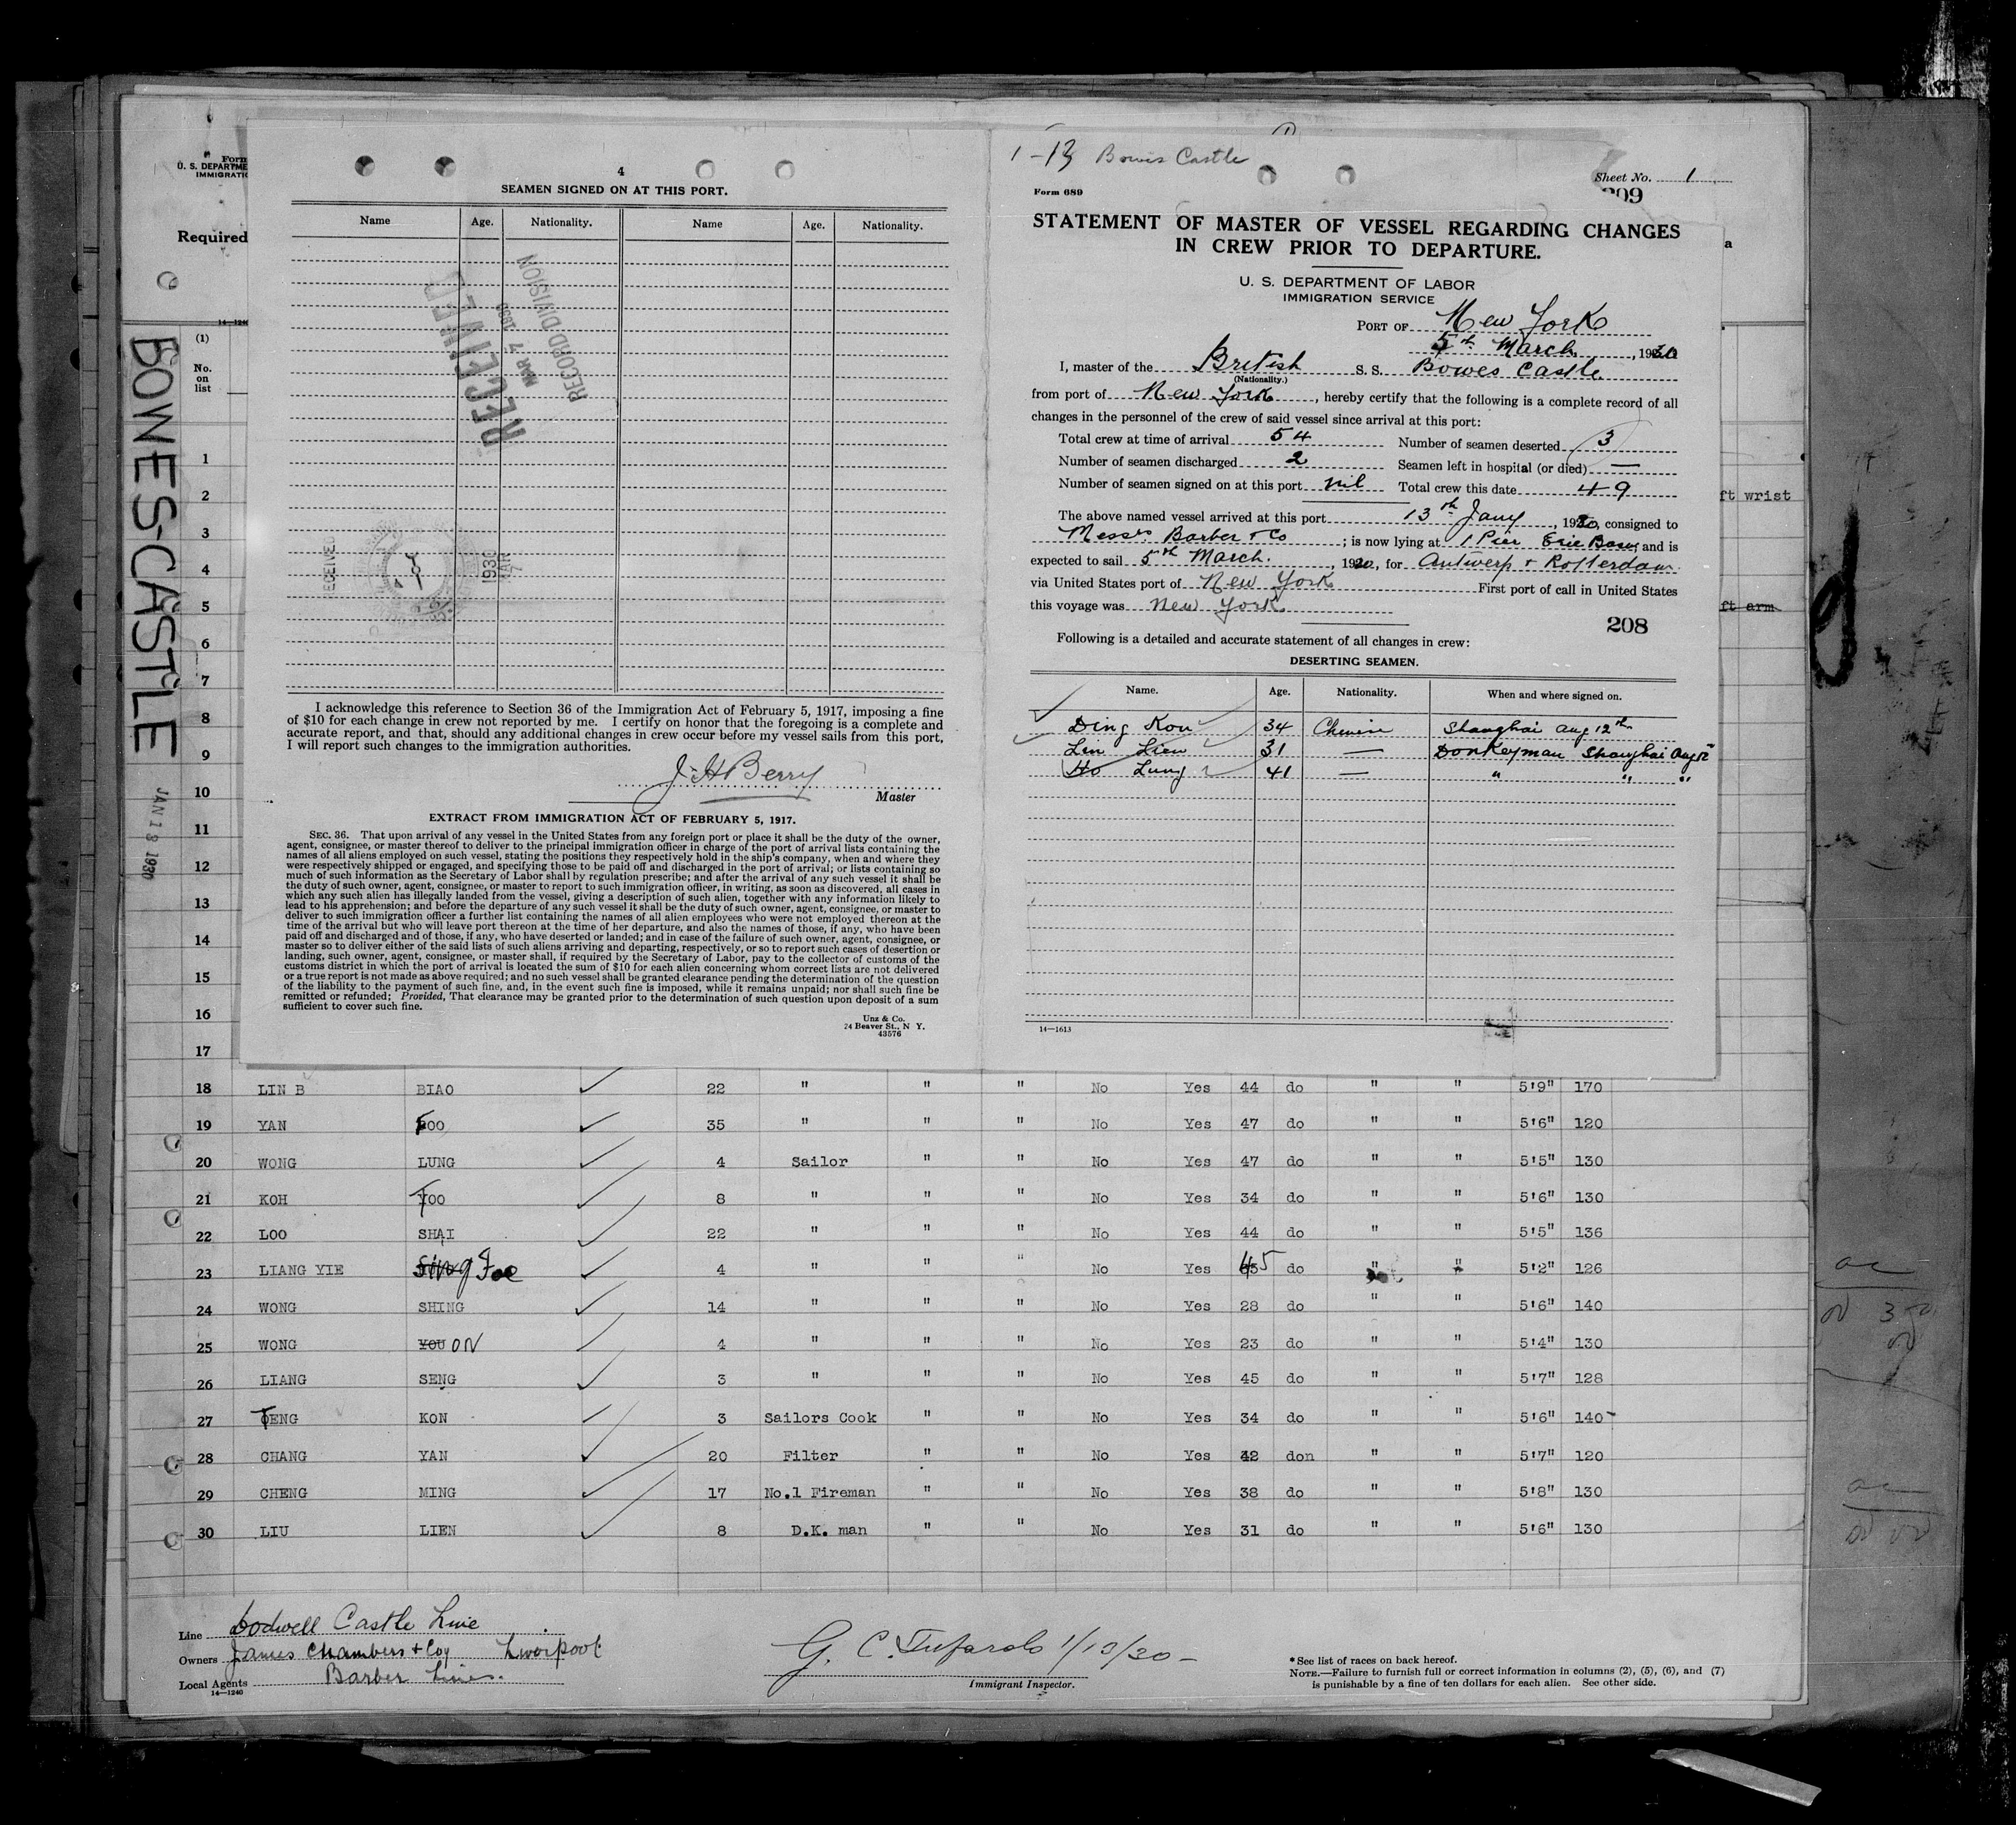 1-13 Bowes Castle
Form
U. S. DEPARTME
IMMIGRATIO
Required
14—1240
(1)
No.
on
list
BOWES-CASTLE
JAN 13 1930
4
SEAMEN SIGNED ON AT THIS PORT.
Name Age. Nationality. Name Age. Nationality.
RECEIVED
MAR 7 1930
RECORD DIVISION
RECEIVED
1930
JAN
7
I acknowledge this reference to Section 36 of the Immigration Act of February 5, 1917, imposing a fine
of $10 for each change in crew not reported by me. I certify on honor that the foregoing is a complete and
accurate report, and that, should any additional changes in crew occur before my vessel sails from this port,
I will report such changes to the immigration authorities.
J. H Berry
Master
EXTRACT FROM IMMIGRATION ACT OF FEBRUARY 5, 1917.
SEC. 36. That upon arrival of any vessel in the United States from any foreign port or place it shall be the duty of the owner,
agent, consignee, or master thereof to deliver to the principal immigration officer in charge of the port of arrival lists containing the
names of all aliens employed on such vessel, stating the positions they respectively hold in the ship's company, when and where they
were respectively shipped or engaged, and specifying those to be paid off and discharged in the port of arrival; or lists containing so
much of such information as the Secretary of Labor shall by regulation prescribe; and after the arrival of any such vessel it shall be
the duty of such owner, agent, consignee, or master to report to such immigration officer, in writing, as soon as discovered, all cases in
which any such alien has illegally landed from the vessel, giving a description of such alien, together with any information likely to
lead to his apprehension; and before the departure of any such vessel it shall be the duty of such owner, agent, consignee, or master to
deliver to such immigration officer a further list containing the names of all alien employees who were not employed thereon at the
time of the arrival but who will leave port thereon at the time of her departure, and also the names of those, if any, who have been
paid off and discharged and of those, if any, who have deserted or landed; and in case of the failure of such owner, agent, consignee, or
master so to deliver either of the said lists of such aliens arriving and departing, respectively, or so to report such cases of desertion or
landing, such owner, agent, consignee, or master shall, if required by the Secretary of Labor, pay to the collector of customs of the
customs district in which the port of arrival is located the sum of $10 for each alien concerning whom correct lists are not delivered
or a true report is not made as above required; and no such vessel shall be granted clearance pending the determination of the question
of the liability to the payment of such fine, and, in the event such fine is imposed, while it remains unpaid; nor shall such fine be
remitted or refunded; Provided, That clearance may be granted prior to the determination of such question upon deposit of a sum
sufficient to cover such fine.
Unz & Co.
24 Beaver St., N Y.
43576
Form 689
Sheet No. 1
209
STATEMENT OF MASTER OF VESSEL REGARDING CHANGES
IN CREW PRIOR TO DEPARTURE.
U. S. DEPARTMENT OF LABOR
IMMIGRATION SERVICE
PORT OF New York
5th March, 1930
I, master of the British S. S. Bowes Castle
(Nationality.)
from port of New York, hereby certify that the following is a complete record of all
changes in the personnel of the crew of said vessel since arrival at this port:
Total crew at time of arrival 54 Number of seamen deserted 3
Number of seamen discharged 2 Seamen left in hospital (or died) —
Number of seamen signed on at this port nil Total crew this date 49
The above named vessel arrived at this port 13th Jany, 1930, consigned to
Messrs Barber & Co; is now lying at 1 Pier Erie Basin and is
expected to sail 5th March., 1930, for Antwerp & Rotterdam
via United States port of New York First port of call in United States
this voyage was New York
208
Following is a detailed and accurate statement of all changes in crew:
DESERTING SEAMEN.
Name. Age. Nationality. When and where signed on.
Ding Kou 34 Chinese Shanghai Aug 12th
Leu Lien 31 — Donkeyman Shanghai Aug 12
Ho Lung 41 — " " "
14—1613
a
ft wrist
ft arm
1
2
3
4
5
6
7
8
9
10
11
12
13
14
15
16
17
18 LIN B BIAO 22 " " " No Yes 44 do " " 5'9" 170
19 YAN FOO 35 " " " No Yes 47 do " " 5'6" 120
20 WONG LUNG 4 Sailor " " No Yes 47 do " " 5'5" 130
21 KOH TOO 8 " " " No Yes 34 do " " 5'6" 130
22 LOO SHAI 22 " " " No Yes 44 do " " 5'5" 136
23 LIANG YIE Sing Foe 4 " " " No Yes 45 do " " 5'2" 126
24 WONG SHING 14 " " " No Yes 28 do " " 5'6" 140
25 WONG YOU ON 4 " " " No Yes 23 do " " 5'4" 130
26 LIANG SENG 3 " " " No Yes 45 do " " 5'7" 128
27 TENG KON 3 Sailors Cook " " No Yes 34 do " " 5'6" 140
28 CHANG YAN 20 Filter " " No Yes 42 don " " 5'7" 120
29 CHENG MING 17 No.1 Fireman " " No Yes 38 do " " 5'8" 130
30 LIU LIEN 8 D.K. man " " No Yes 31 do " " 5'6" 130
Line Dodwell Castle Line
Owners James Chambers & Coy Liverpool
Local Agents Barber Lines.
14—1240
G. C. Tufarolo 1/13/30
Immigrant Inspector.
*See list of races on back hereof.
NOTE.—Failure to furnish full or correct information in columns (2), (5), (6), and (7)
is punishable by a fine of ten dollars for each alien. See other side.